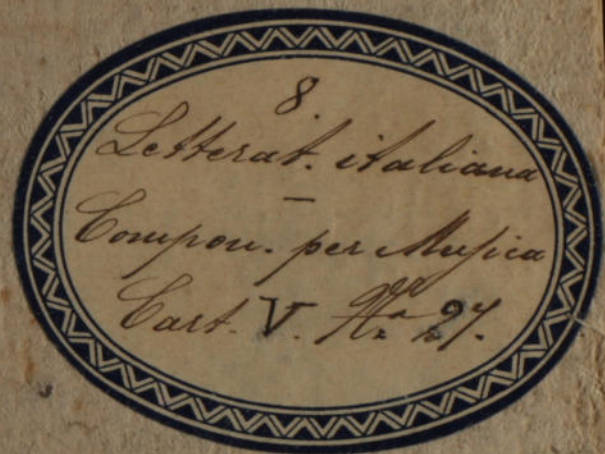 8.
Letterat. italiana
–
Compon. per Musica
Cart. V. 27.